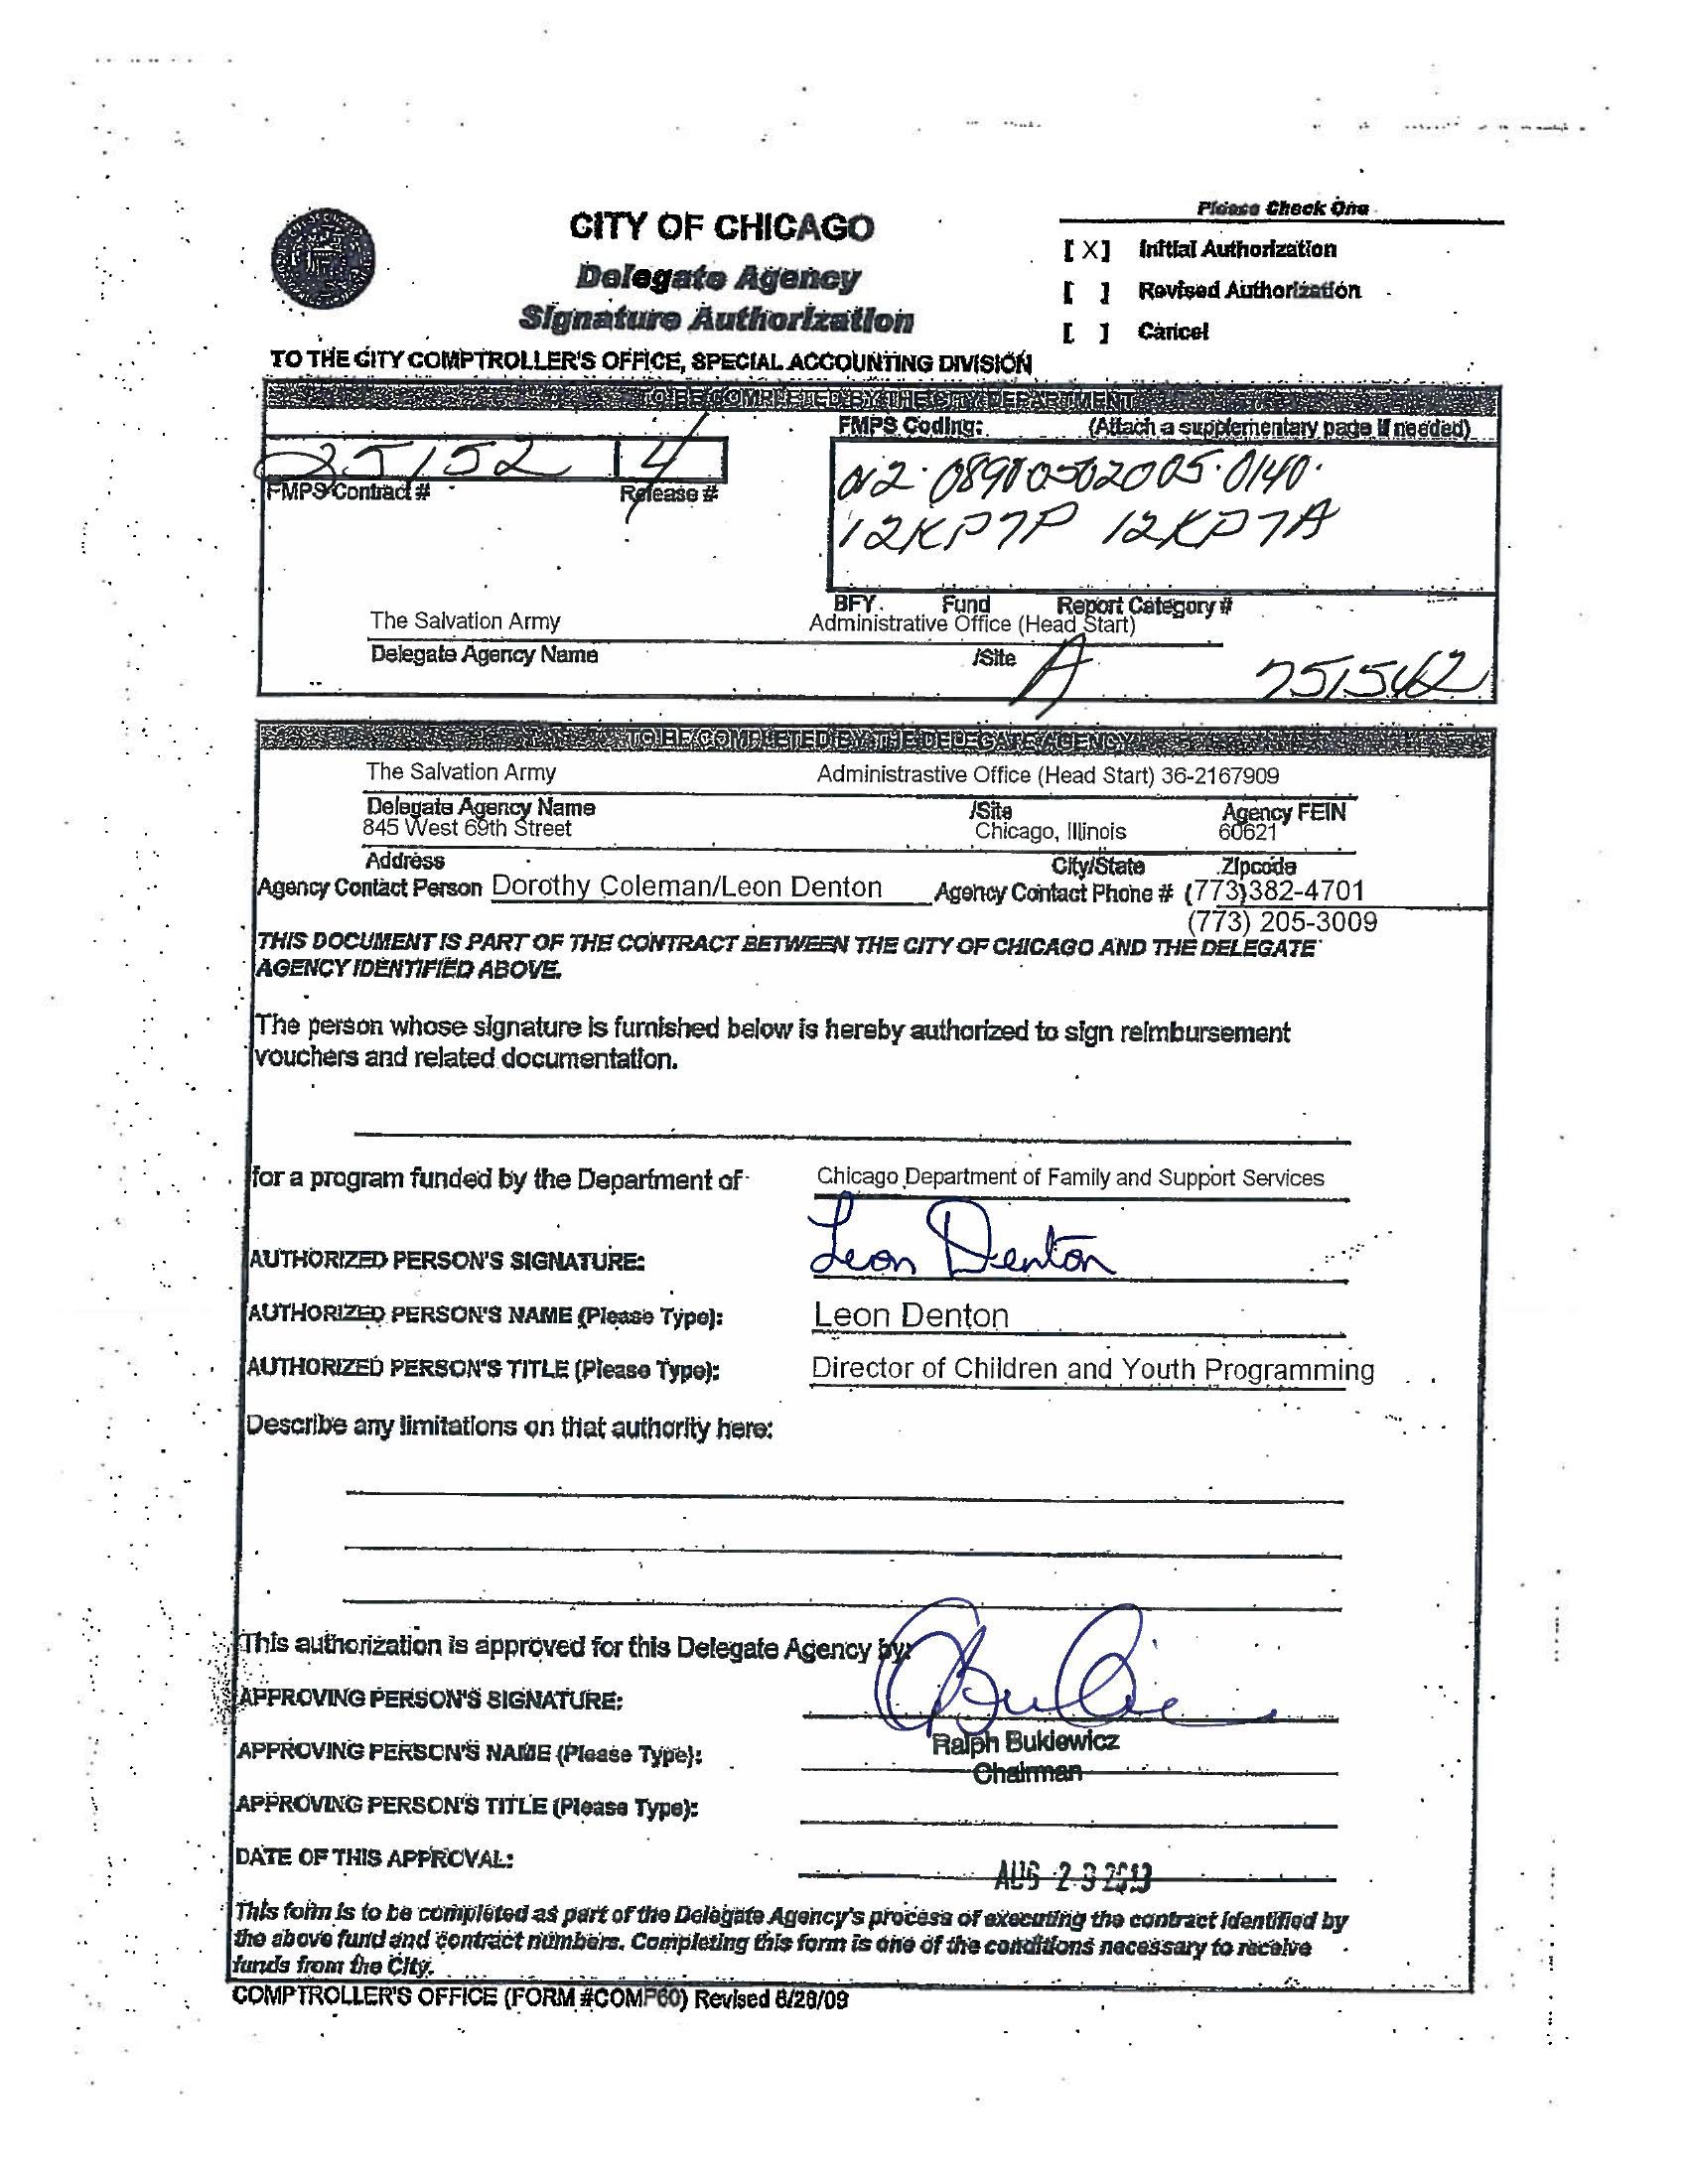 CITY OF CHICAGO
Delegate Agency
Signature Authorization
Please Check One
[ X ] Initial Authorization
[ ] Revised Authorization
[ ] Cancel
TO THE CITY COMPTROLLER'S OFFICE, SPECIAL ACCOUNTING DIVISION
TO BE COMPLETED BY THE CITY DEPARTMENT
FMPS Coding: (Attach a supplementary page if needed)
25152 4
FMPS Contract # Release #
12KP7P 12KP7A
BFY Fund Report Category #
The Salvation Army Administrative Office (Head Start)
Delegate Agency Name /Site A
TO BE COMPLETED BY THE DELEGATE AGENCY
The Salvation Army Administrastive Office (Head Start) 36-2167909
Delegate Agency Name /Site Agency FEIN
845 West 69th Street Chicago, Illinois 60621
Address City/State Zipcode
Agency Contact Person Dorothy Coleman/Leon Denton Agency Contact Phone # (773)382-4701
(773) 205-3009
THIS DOCUMENT IS PART OF THE CONTRACT BETWEEN THE CITY OF CHICAGO AND THE DELEGATE
AGENCY IDENTIFIED ABOVE.
The person whose signature is furnished below is hereby authorized to sign reimbursement
vouchers and related documentation.
for a program funded by the Department of Chicago Department of Family and Support Services
AUTHORIZED PERSON'S SIGNATURE: Leon Denton
AUTHORIZED PERSON'S NAME (Please Type): Leon Denton
AUTHORIZED PERSON'S TITLE (Please Type): Director of Children and Youth Programming
Describe any limitations on that authority here:
This authorization is approved for this Delegate Agency by:
APPROVING PERSON'S SIGNATURE:
APPROVING PERSON'S NAME (Please Type): Ralph Bukiewicz
Chairman
APPROVING PERSON'S TITLE (Please Type):
DATE OF THIS APPROVAL: AUG 23 2013
This form is to be completed as part of the Delegate Agency's process of executing the contract identified by
the above fund and contract numbers. Completing this form is one of the conditions necessary to receive
funds from the City.
COMPTROLLER'S OFFICE (FORM #COMP60) Revised 8/28/09